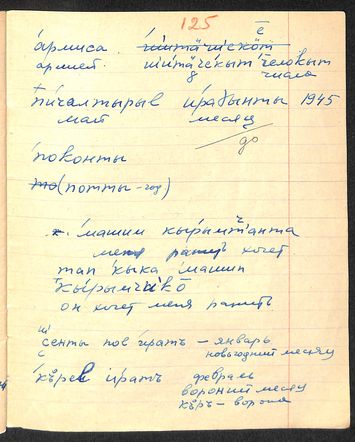 125
армиса. шӣтӓчӣскот̄ē
армией. шӣтӓчéкыт чéловыт
8 числа
пичалтырыв ирадынты 1945
май месяц
до
поконты
то (потты - год)
машим кырымчанта
меня ранить хочет
тап кыка машип
кырымчикō
он хочет меня ранить
сенты пов ирать - январь
новогодний месяц
кърев ирать февраль
вороний месяц
къръ - ворона